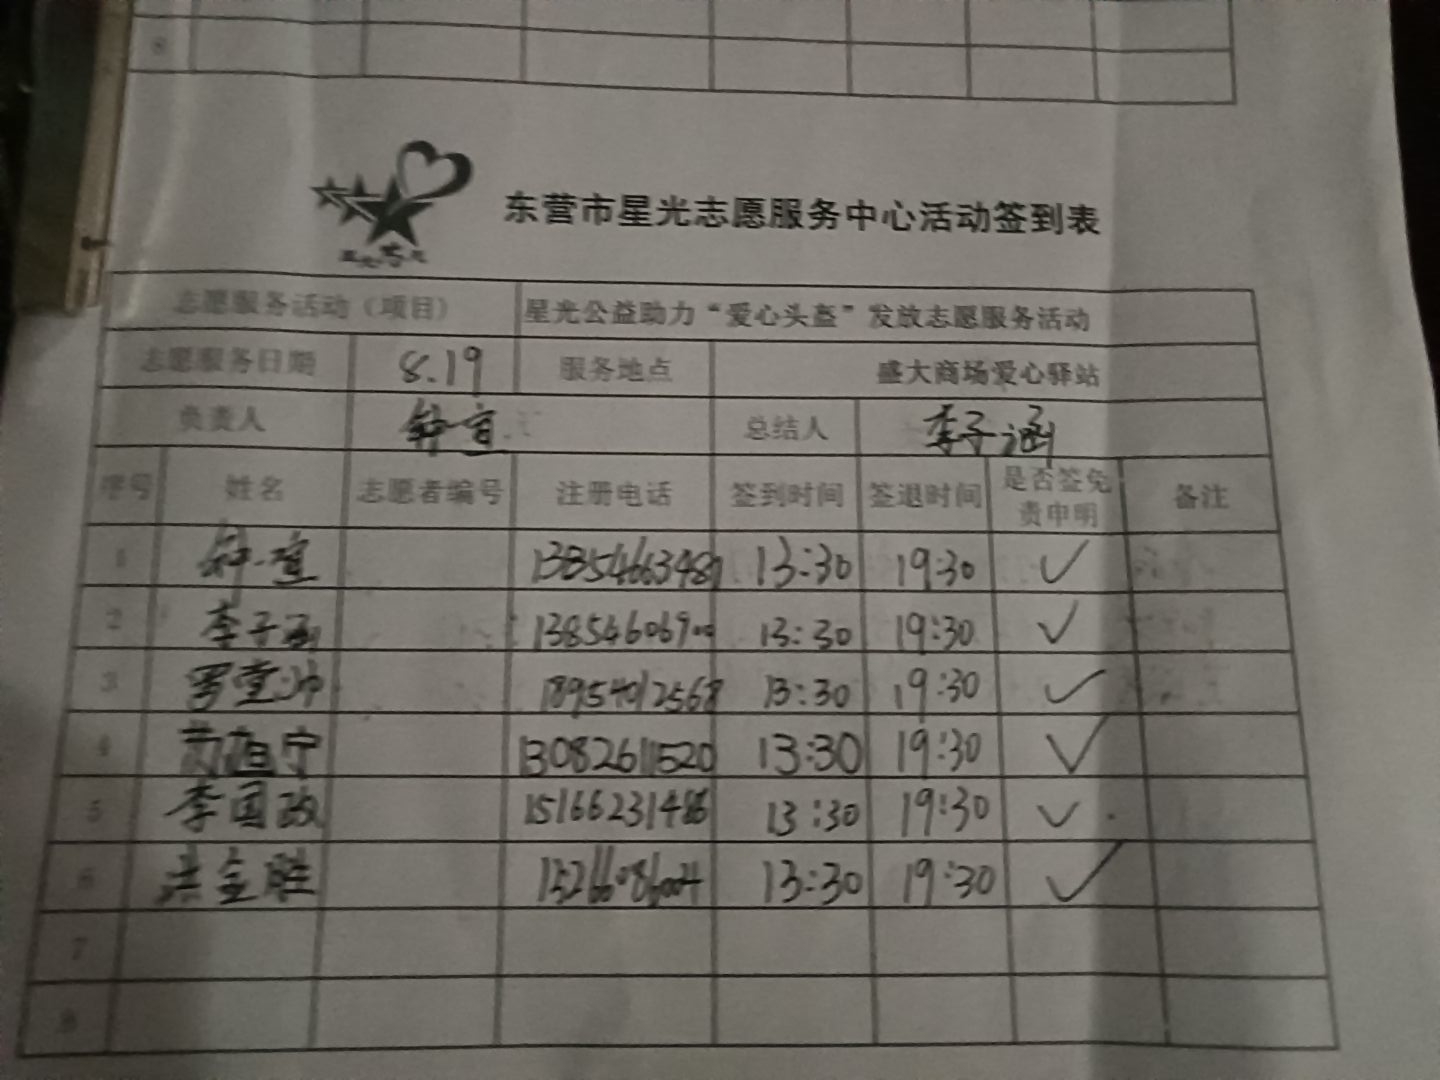 8
东营市星光志愿服务中心活动签到表
志愿服务活动（项目） 星光公益助力“爱心头盔”发放志愿服务活动
志愿服务日期 8.19 服务地点 盛大商场爱心驿站
负责人 总结人 李子涵
序号 姓名 志愿者编号 注册电话 签到时间 签退时间 是否签免责申明 备注
1 13:30 19:30 ✓
2 李子涵 13:30 19:30 ✓
3 18954012568 13:30 19:30 ✓
4 13082611520 13:30 19:30 ✓
5 李国政 15166231486 13:30 19:30 ✓
6 洪金胜 13:30 19:30 ✓
7
8